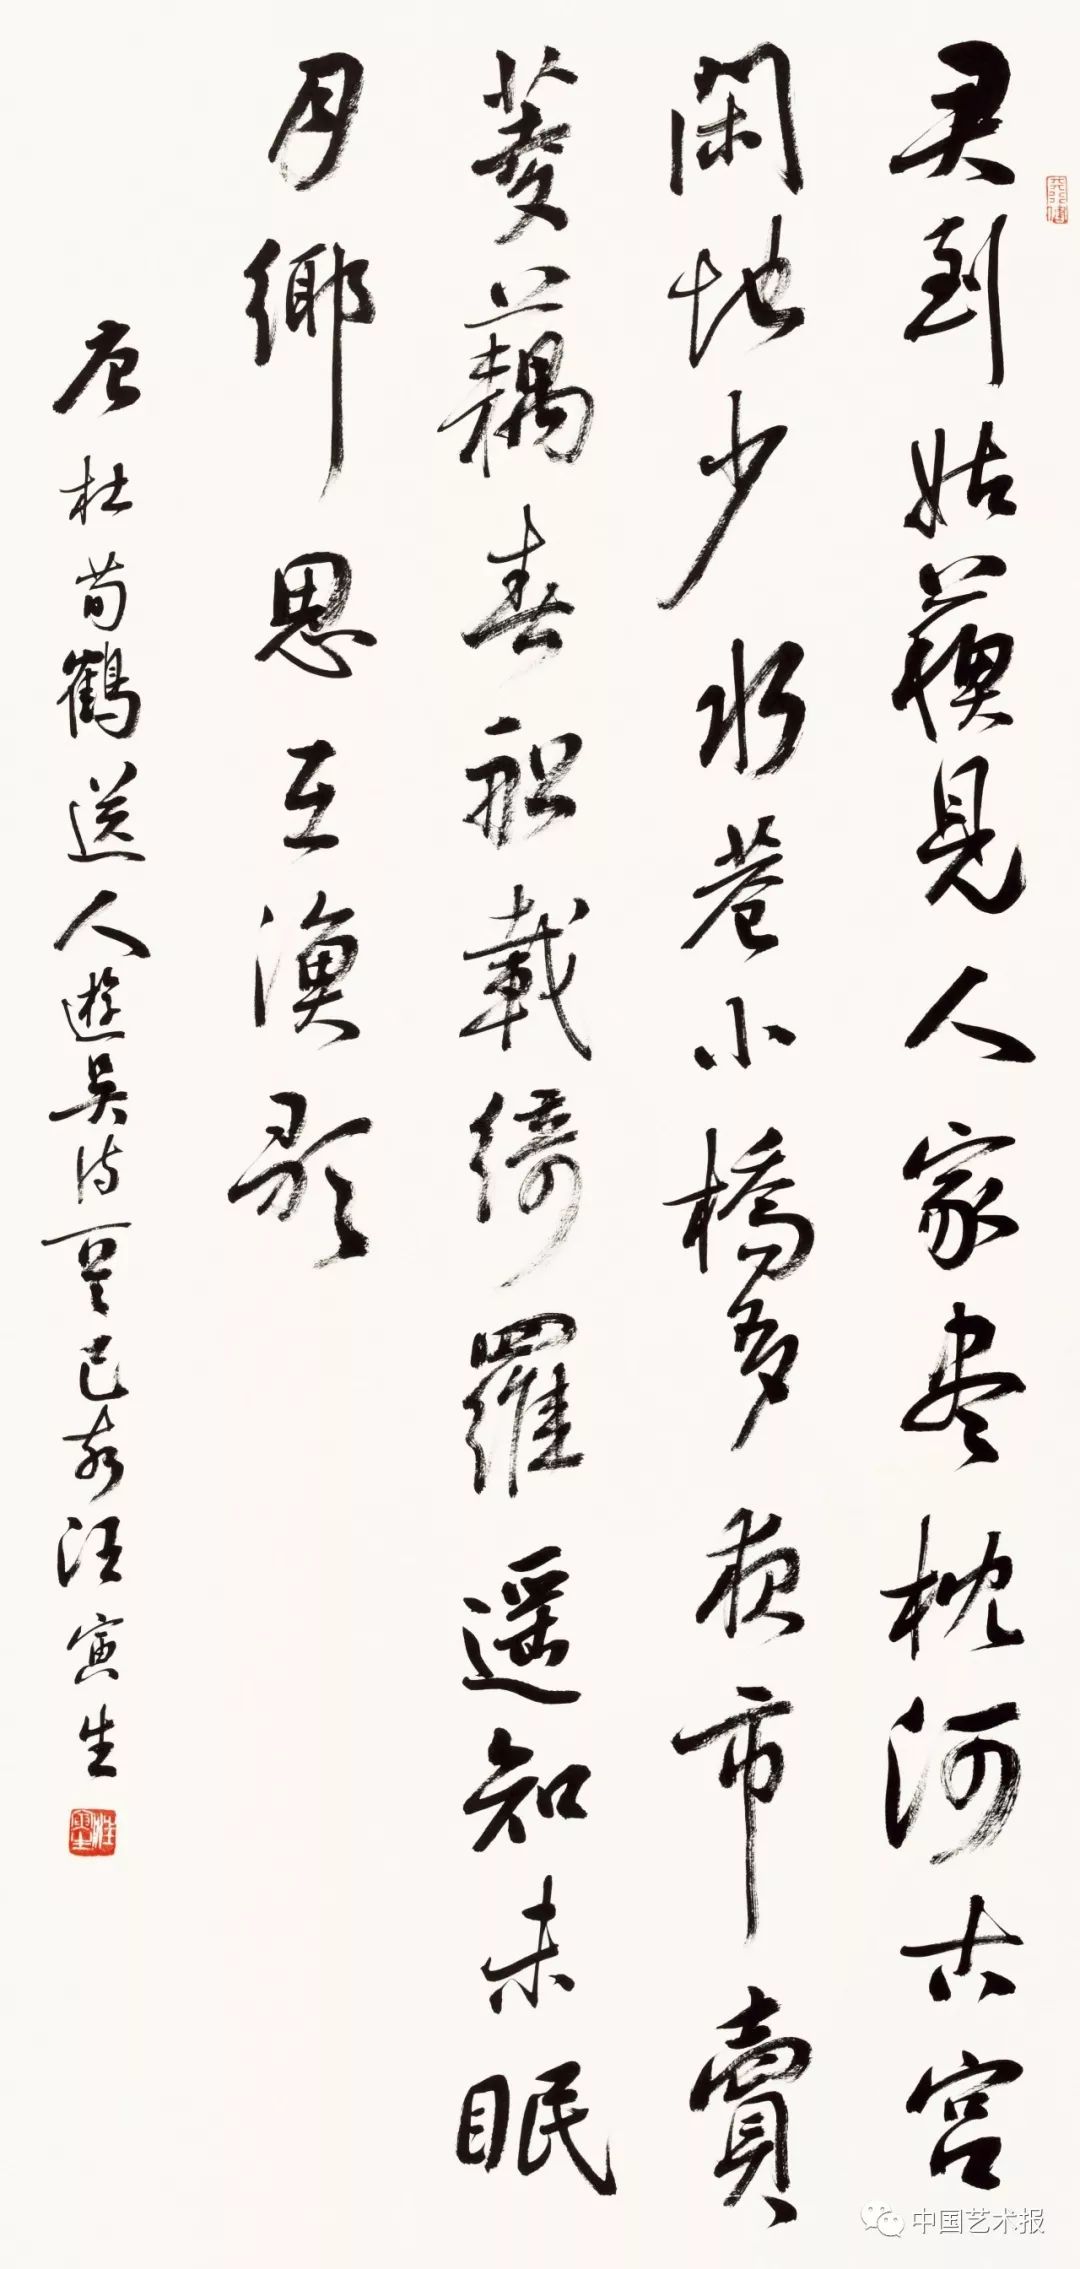 君到姑蘇見人家盡枕河古宮
閑地少水巷小橋多夜市賣
菱藕春船載綺羅遥知未眠
月鄉思在漁歌
唐杜荀鶴送人遊吳詩己亥汪寅生
中国艺术报